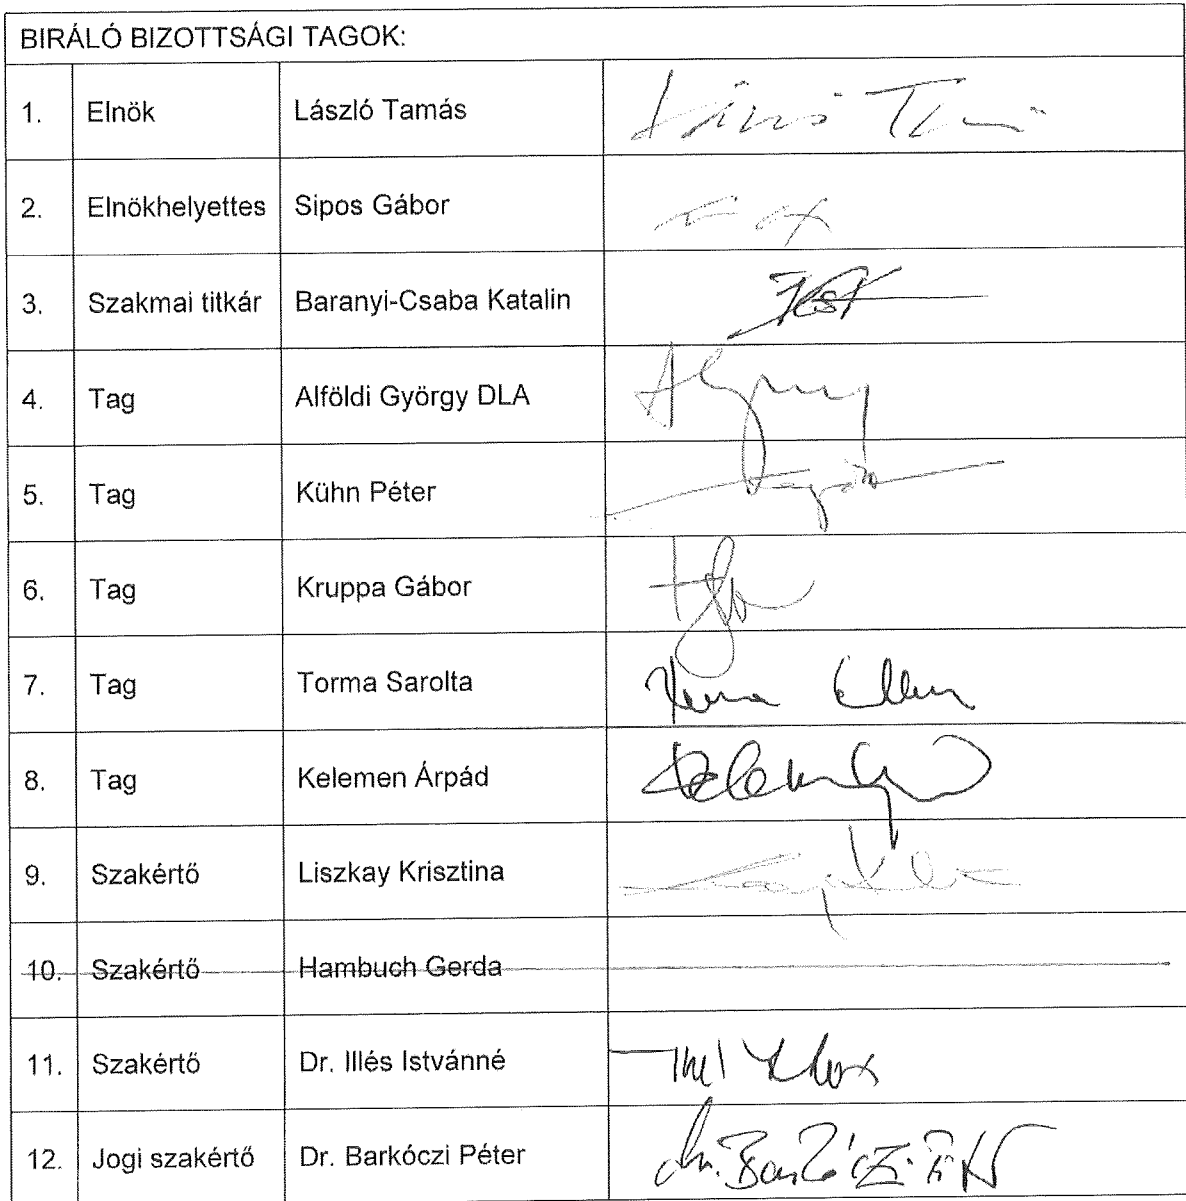 BIRÁLÓ BIZOTTSÁGI TAGOK:
1. Elnök László Tamás
2. Elnökhelyettes Sipos Gábor
3. Szakmai titkár Baranyi-Csaba Katalin
4. Tag Alföldi György DLA
5. Tag Kühn Péter
6. Tag Kruppa Gábor
7. Tag Torma Sarolta
8. Tag Kelemen Árpád
9. Szakértő Liszkay Krisztina
10. Szakértő Hambuch Gerda
11. Szakértő Dr. Illés Istvánné
12. Jogi szakértő Dr. Barkóczi Péter